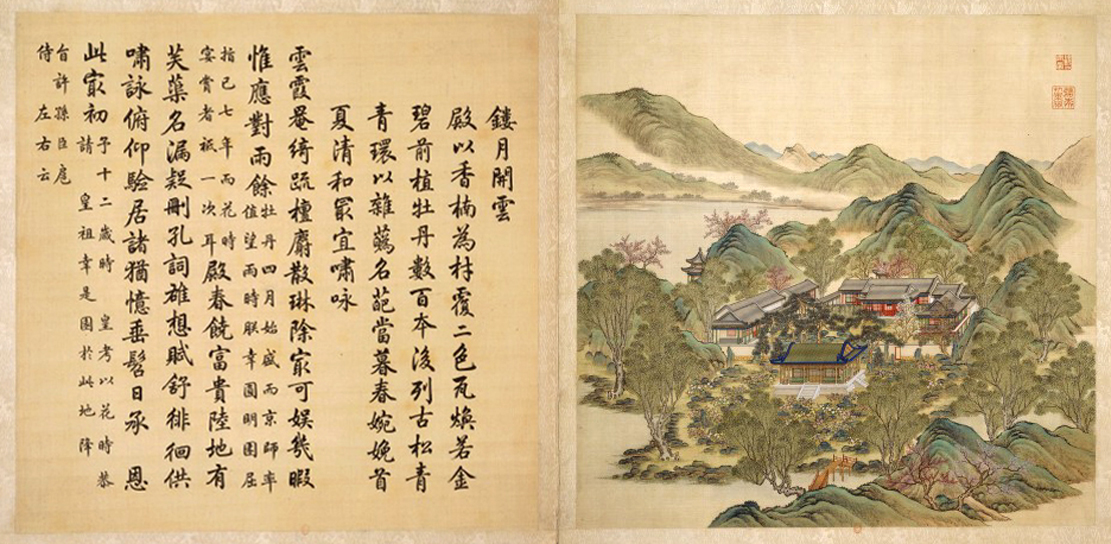 鏤月開雲
殿以香楠為材覆二色瓦煥若金
碧前植牡丹數百本後列古松青
青環以雜蘤名葩當暮春婉娩首
夏清和㝡宜嘯咏
雲霞罨綺疏檀麝散琳除㝡可娛幾暇
惟應對雨餘
牡丹四月始盛而京師率
值望雨時朕幸圓明園屈
指已七年而花時
宴賞者祇一次耳
殿春饒富貴陸地有
芙蕖名漏疑刪孔詞雄想賦舒徘徊供
嘯詠俯仰驗居諸猶憶垂髫日承 恩
此㝡初
予十二歲時 皇考以花時恭
請 皇祖幸是園於此地降
旨許孫臣扈
侍左右云